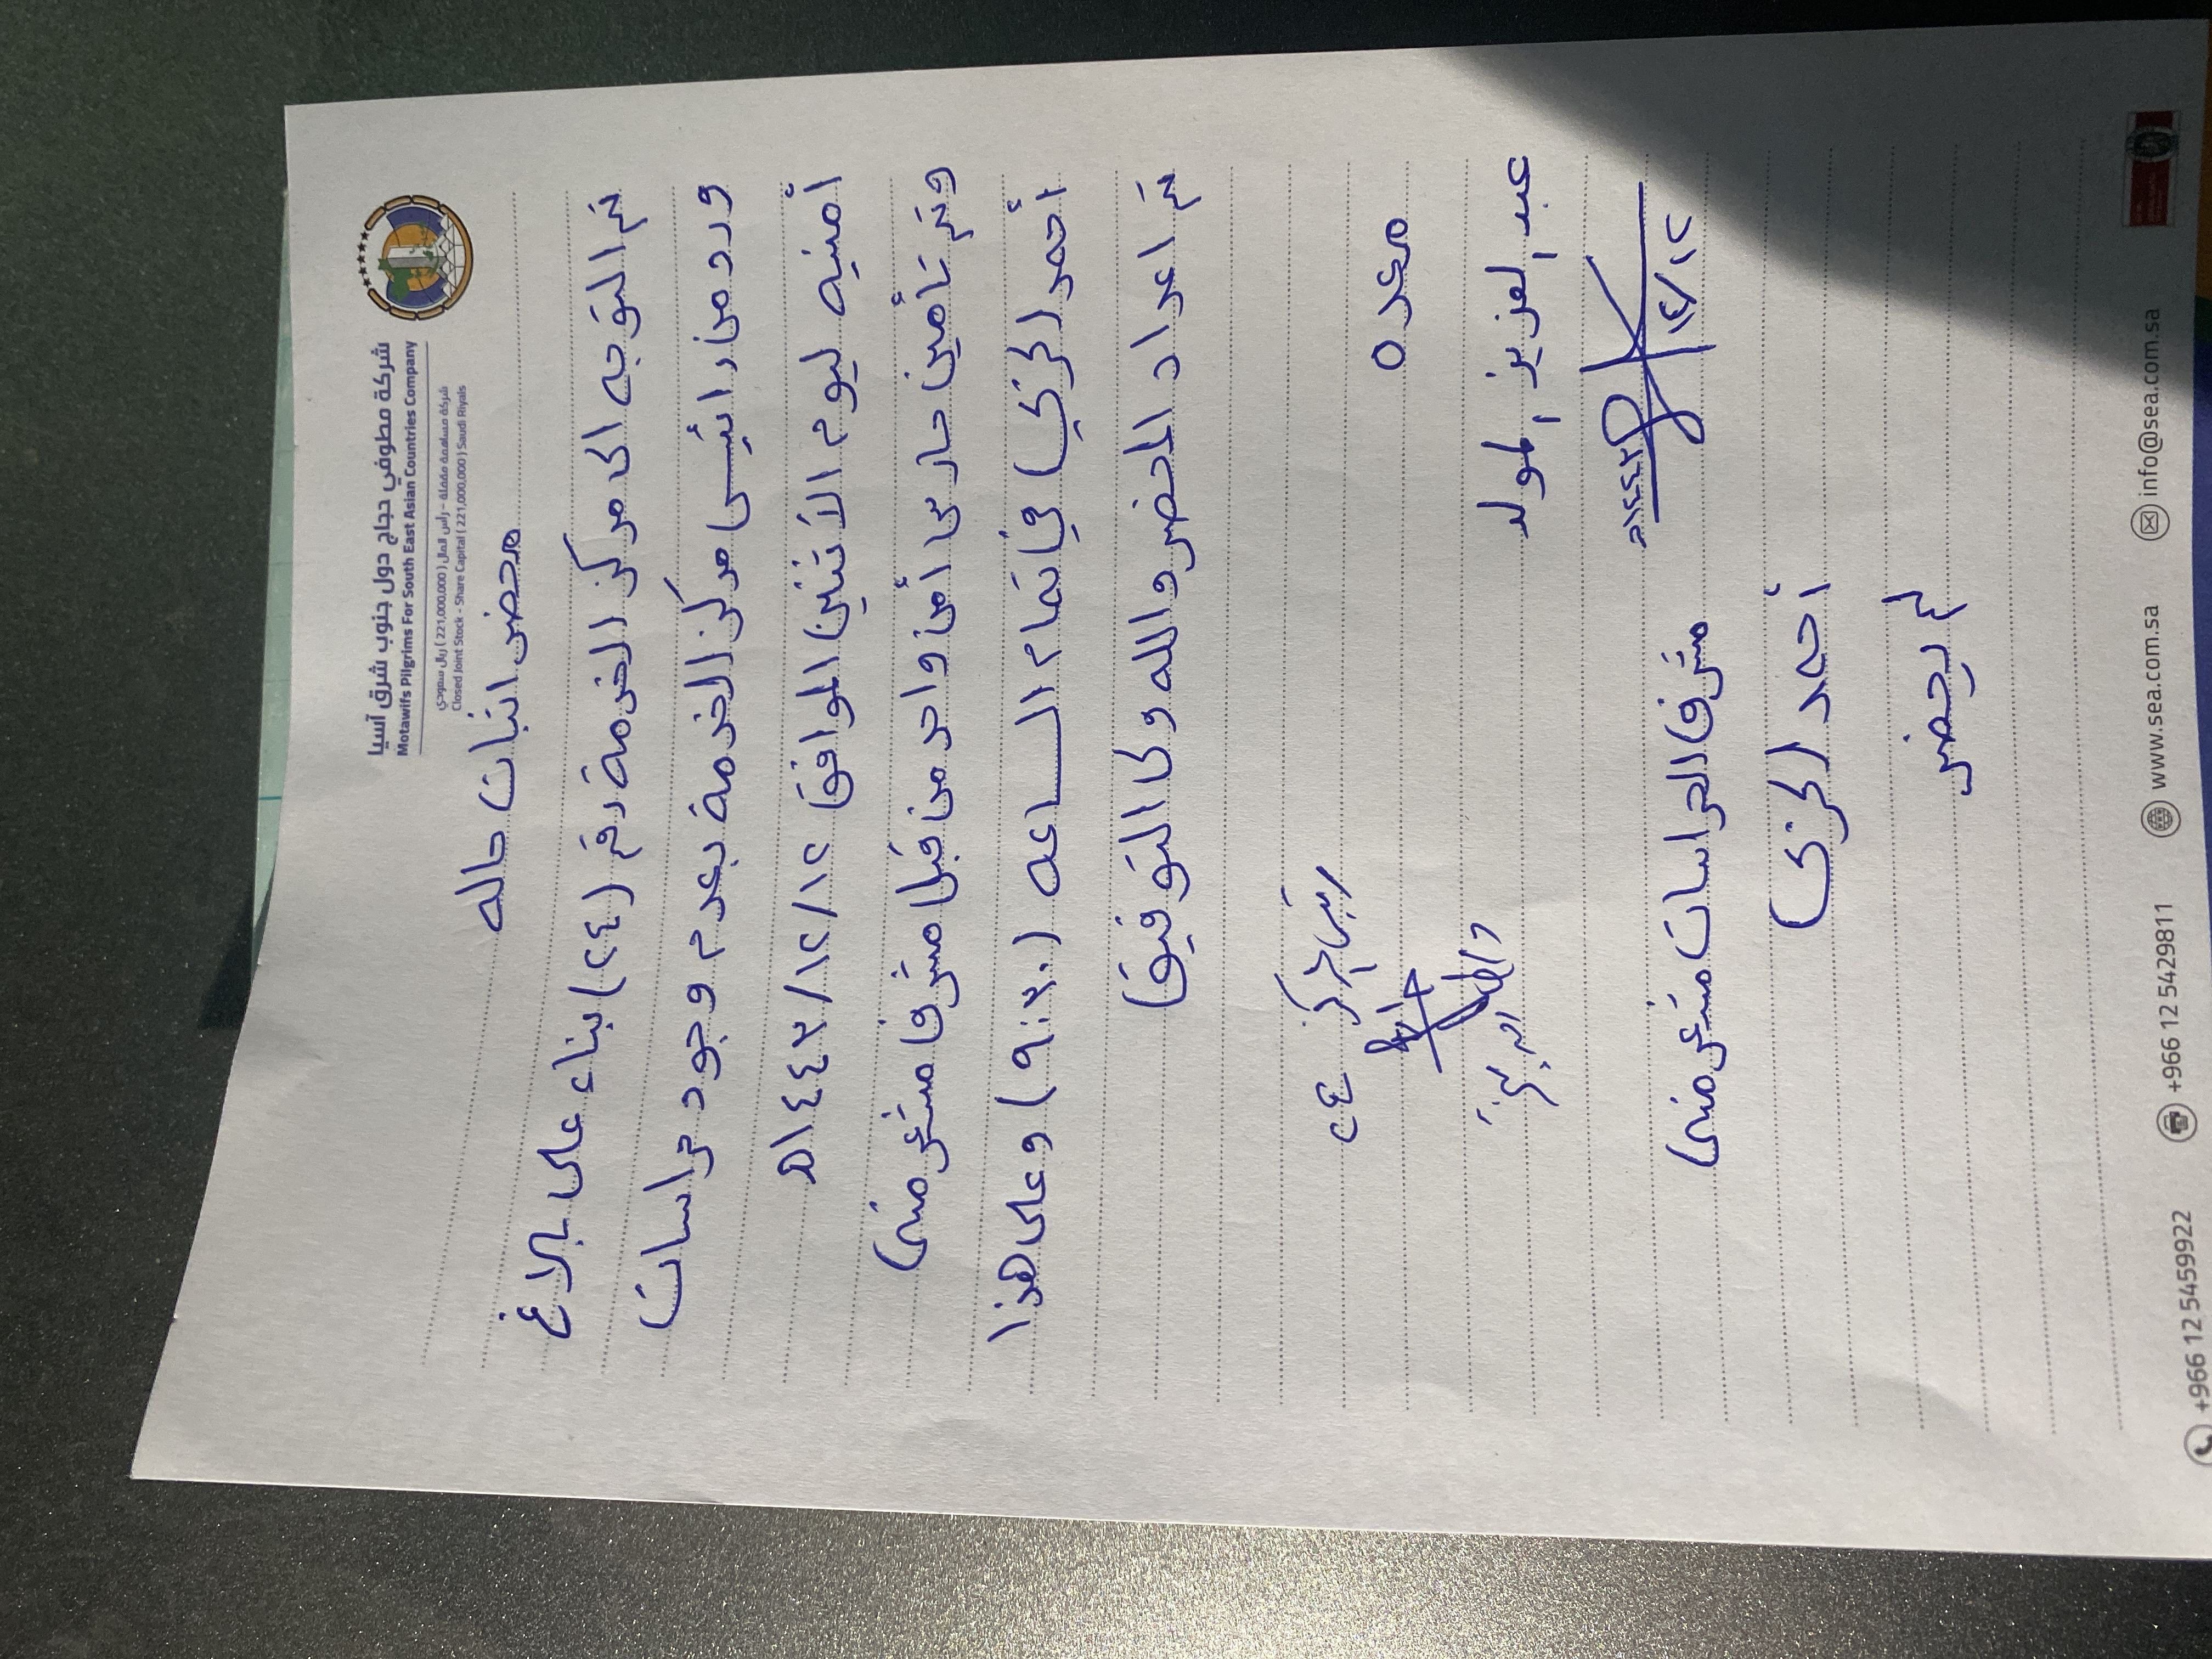 شركة مطوفي حجاج دول جنوب شرق آسيا
Motawifs Pilgrims For South East Asian Countries Company
شركة مساهمة مقفلة - رأس المال ( 221,000,000 ) ريال سعودي
Closed Joint Stock - Share Capital ( 221,000,000 ) Saudi Riyals
محضر اثبات حاله
تم التوجه الى مركز الخدمة رقم (٢٤) بناء على بلاغ
ورد من رائيس مركز الخدمة بعدم وجود حراسات
أمنيه ليوم الأثنين الموافق ١٤٤٣/١٢/١٢هـ
وتم تأمين حارس أمن واحد من قبل مشرف مشعر منى
أحمد الحربي في تمام الساعه (٩:٣٠) وعلى هذا
تم اعداد المحضر والله ولى التوفيق
رئيس المركز ٢٤
معده
عبد العزيز المولد
١٤٤٣هـ
١٢/١٢
مشرف الحراسات مشعر منى
أحمد الحربى
لم يحضر
+966 12 5459922
+966 12 5429811
www.sea.com.sa
info@sea.com.sa